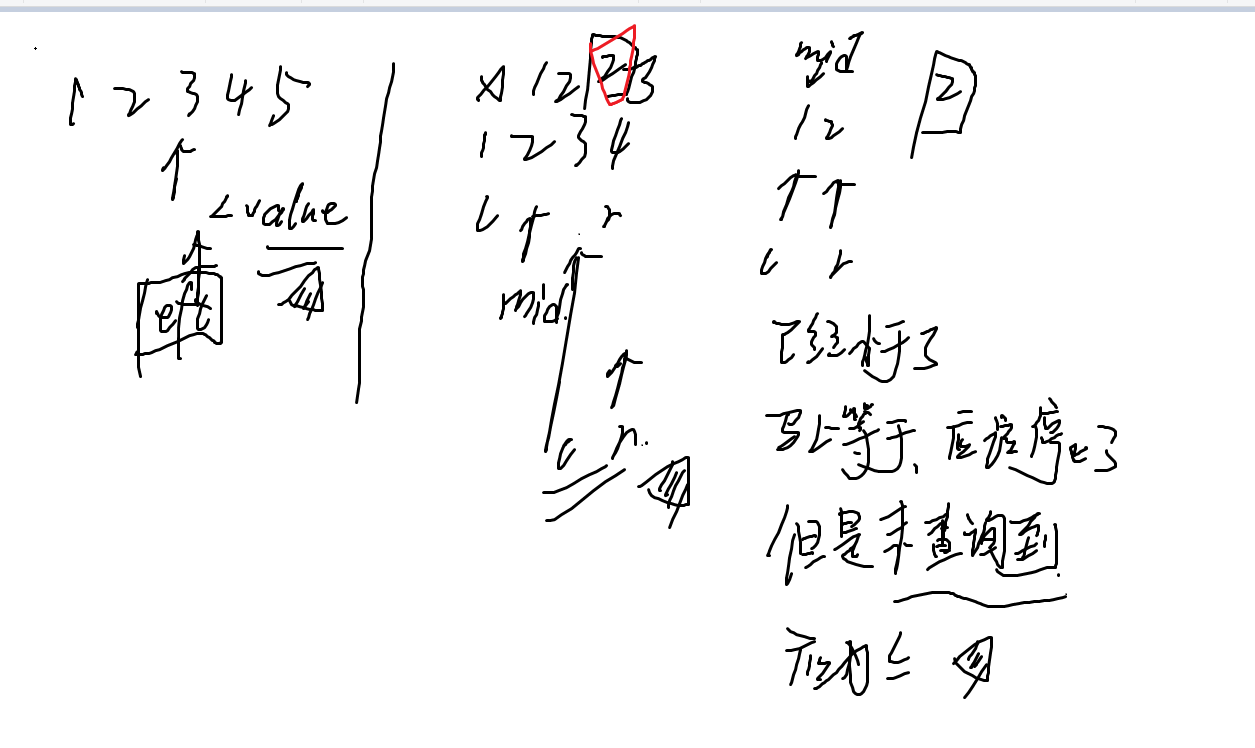 1 2 3 4 5
< value
eft
1 2 2 3
1 2 3 4
L r
mid
L r
mid
1 2
2
L r
已经小于了
写上等于、应该停止了
但是未查询到
应为 ≤